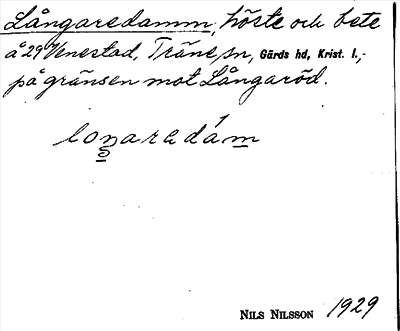 Långaredamm, höste och bete
å 29 Venestad, Träne sn, Gärds hd, Krist. l.,
på gränsen mot Långaröd.
loŋaredám
NILS NILSSON 1929